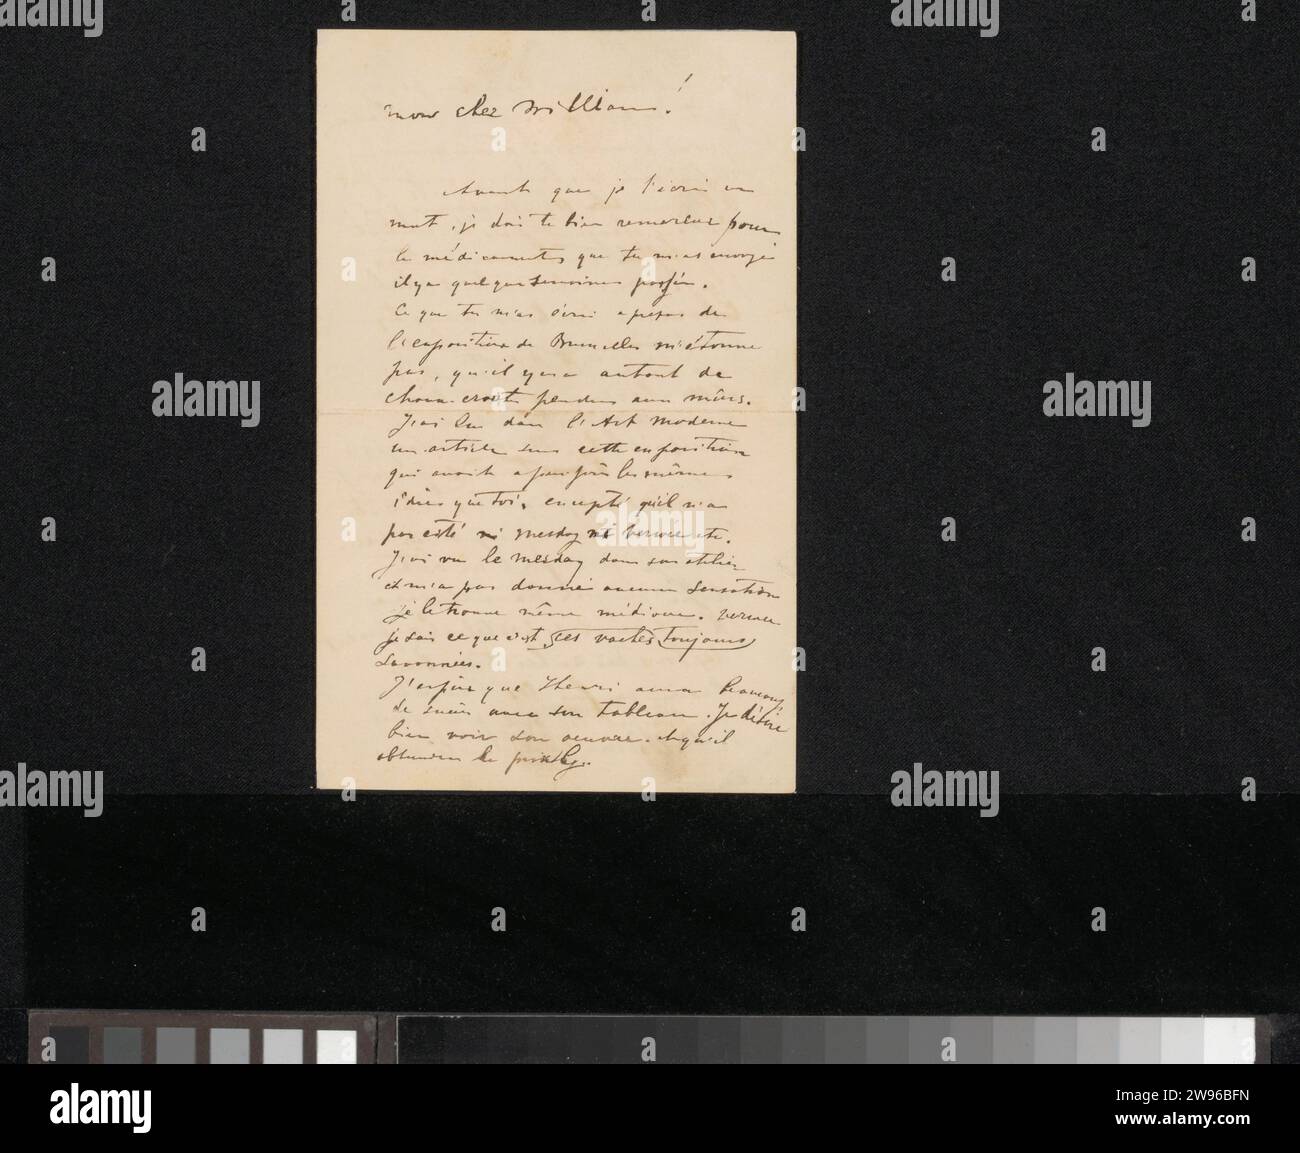 mon cher William!
Avant que je t'écrive un
mot, je dois te bien remercier pour
le médicaments que tu m'as envoyé
il y a quelque semaines passés.
Ce que tu m'as écri apropos de
l'exposition de Bruxelles m'étonne
pas, qu'il y a autant de
choux-croute pendu aux mûrs.
J'ai lu dans l'Art moderne
un article sur cette exposition
qui avait apeupprès les mêmes
idées que toi, excepté qu'il n'a
pas cité ni mesdag ni verwée etc.
J'ai vu le mesdag dans son atelier
et m'a pas donné aucune sensation
je le trouve même médiocre. verwee
je sais ce que c'est ses vaches toujours
savonnées.
J'espère que Henri aura beaucoup
de succès avec son tableau. Je désire
bien voir son oeuvre. et qu'il
le
alamy
Image ID: 2W96BFN
www.alamy.com